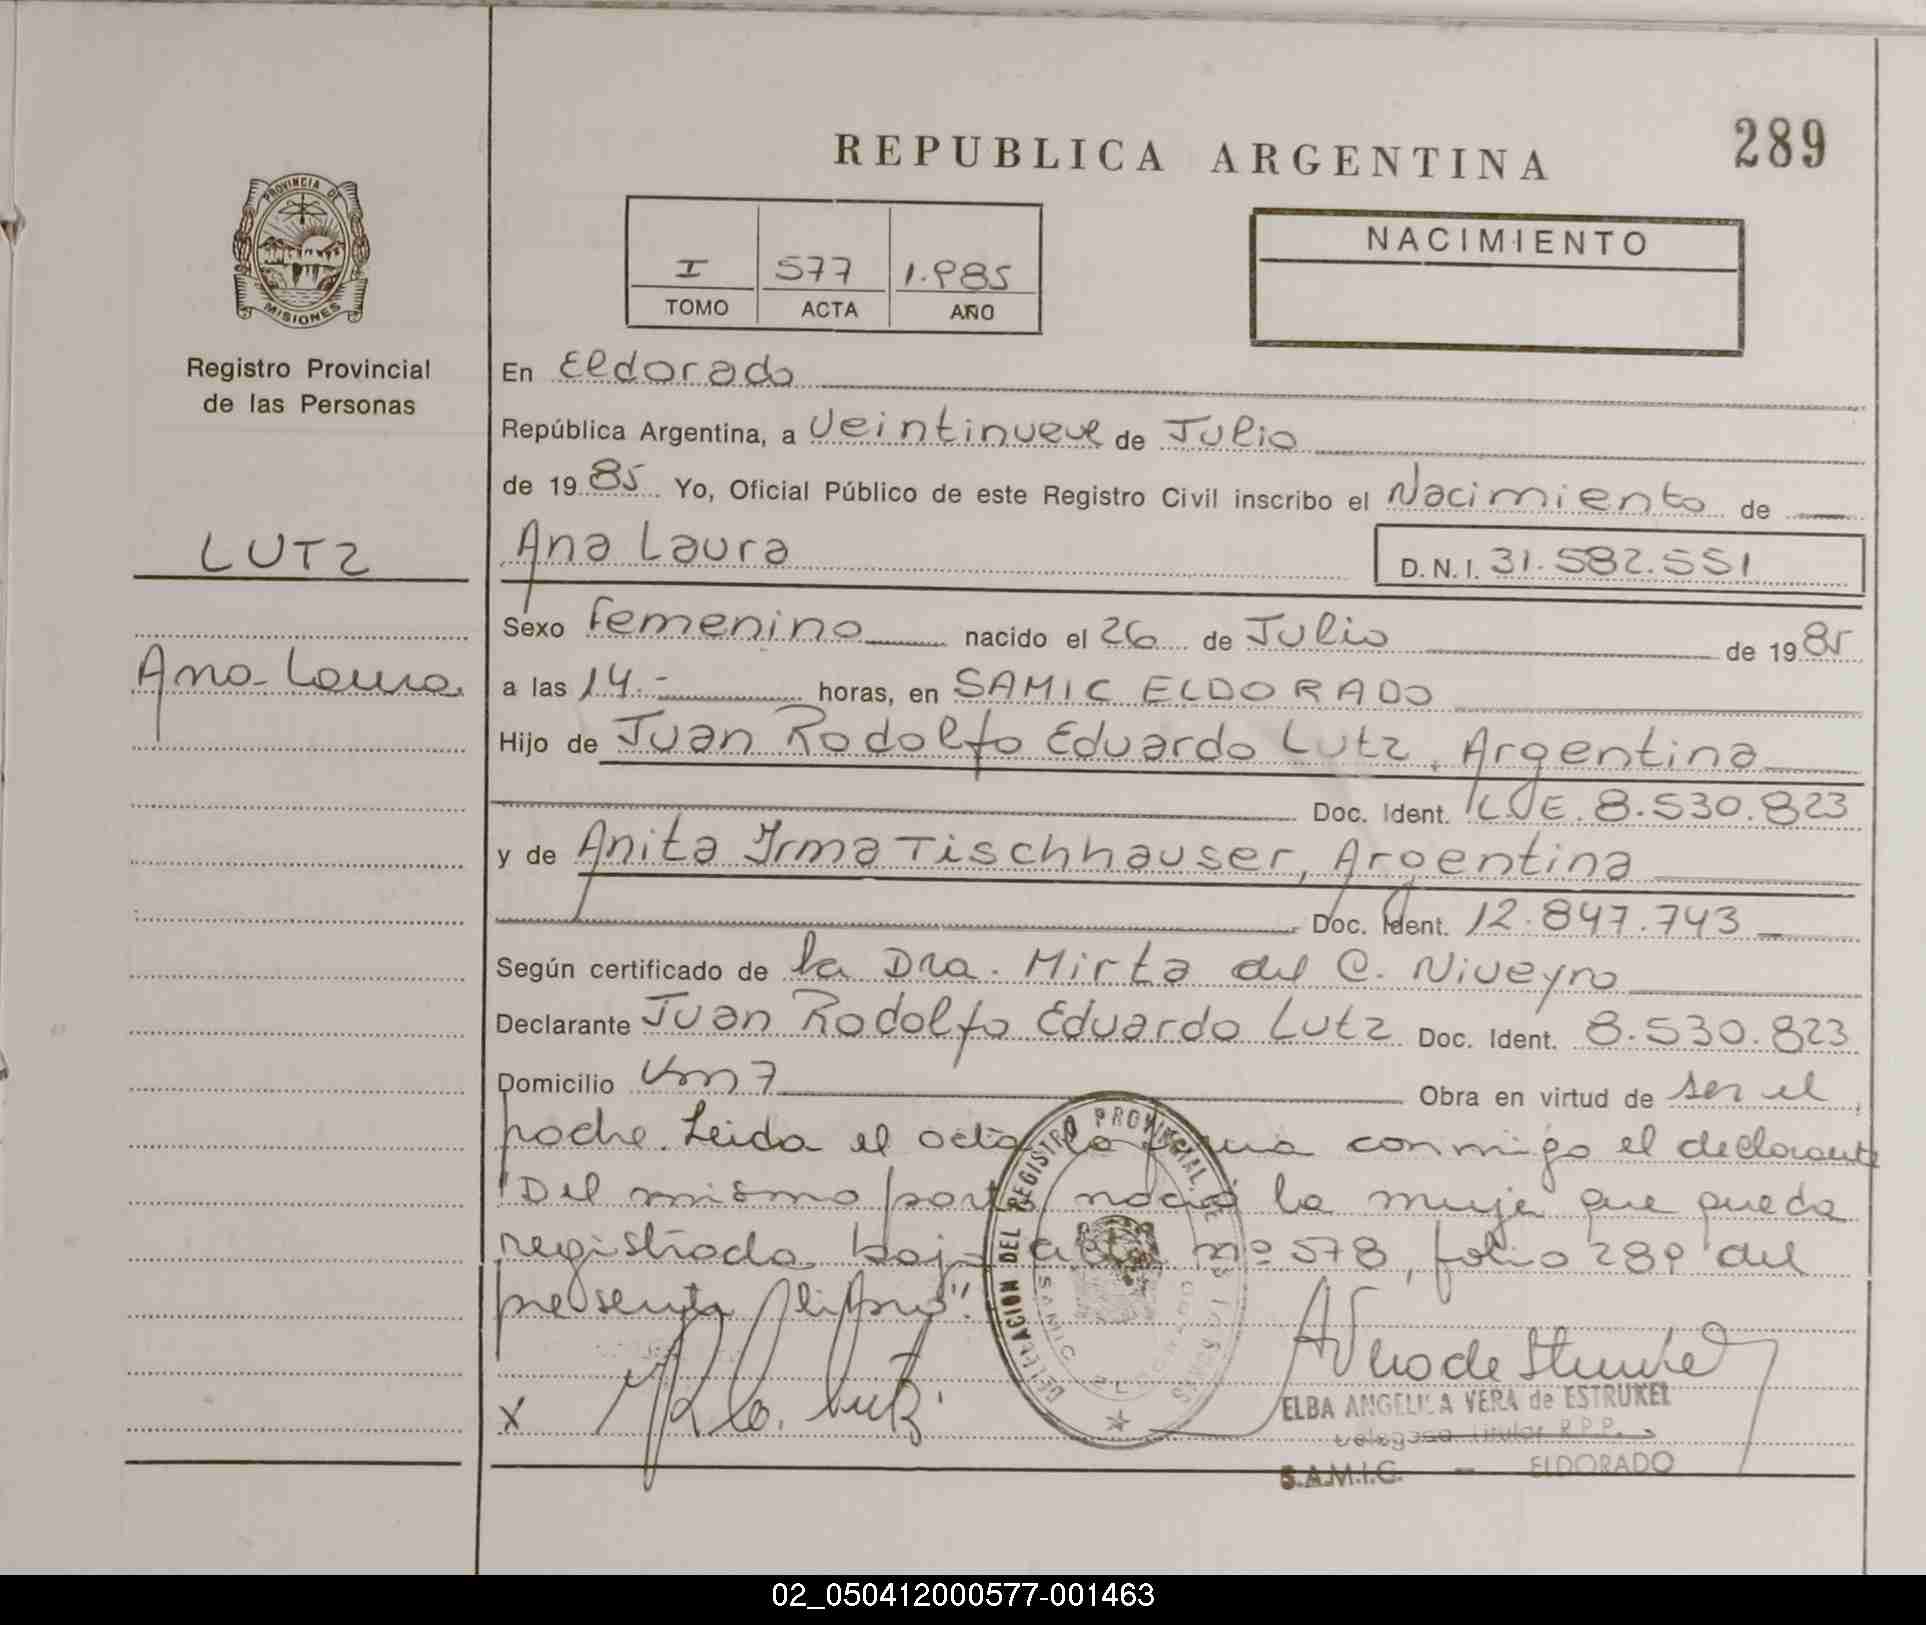 289
REPUBLICA ARGENTINA
PROVINCIA DE
MISIONES
Registro Provincial
de las Personas
I 577 1.985
TOMO ACTA AÑO
NACIMIENTO
En Eldorado
República Argentina, a Veintinueve de Julio
de 1985 Yo, Oficial Público de este Registro Civil inscribo el Nacimiento de
LUTZ
Ana Laura
D.N.I. 31.582.551
Sexo Femenino nacido el 26 de Julio de 1985
Ana Laura
a las 14.- horas, en SAMIC ELDORADO
Hijo de Juan Rodolfo Eduardo Lutz, Argentina
Doc. Ident. L.E. 8.530.823
y de Anita Irma Tischhauser, Argentina
Doc. Ident. 12.847.743
Según certificado de la Dra. Mirta del C. Niveyro
Declarante Juan Rodolfo Eduardo Lutz Doc. Ident. 8.530.823
Domicilio Km 7 Obra en virtud de ser el
padre. Leida el acta la firma conmigo el declarante
"Del mismo parto nació la mujer que queda
registrada bajo acta nº 578, folio 289 del
presente libro".
DELEGACION DEL REGISTRO PROVINCIAL DE LAS PERSONAS
SAMIC
ELDORADO
x
ELBA ANGELICA VERA de ESTRUKEL
Delegada Titular R.P.P.
S.A.M.I.C. - ELDORADO
02_050412000577-001463